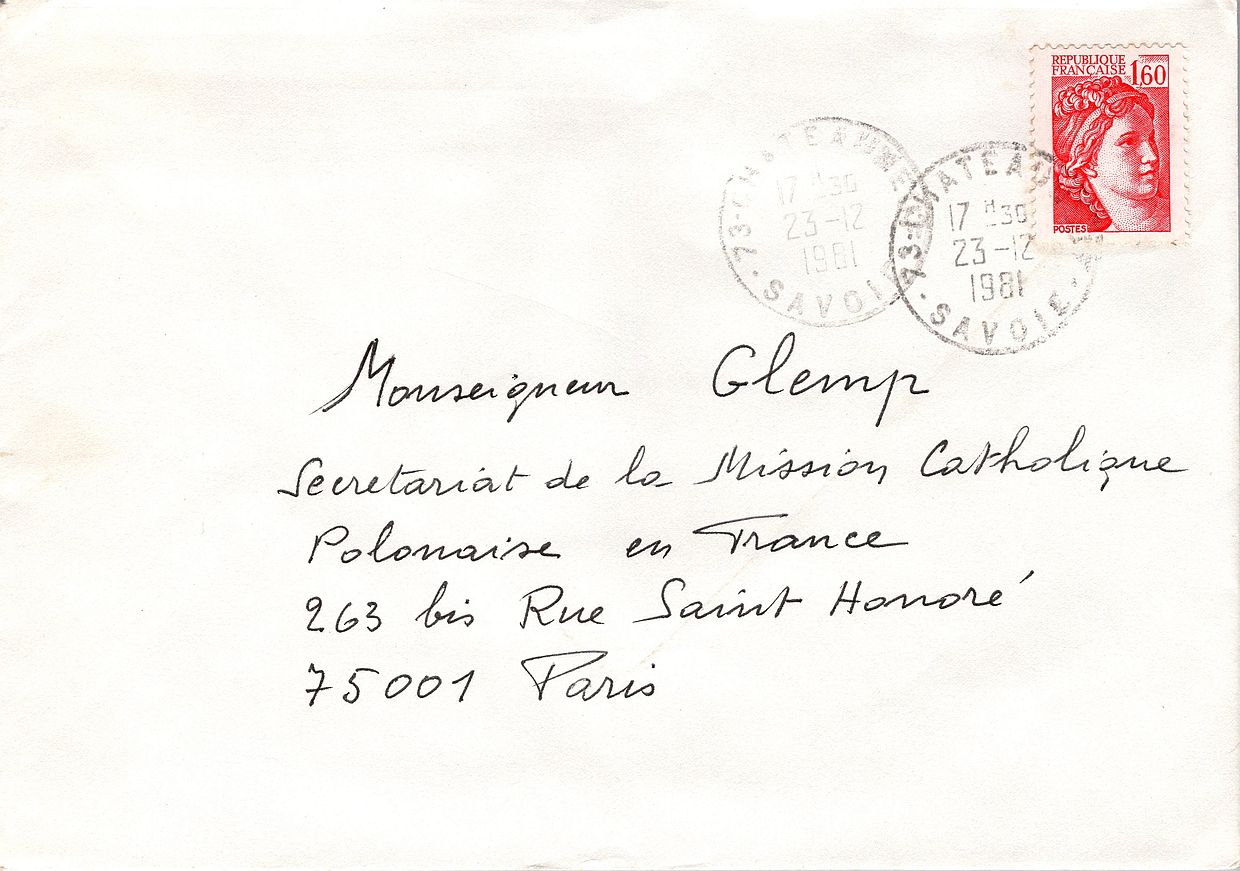 REPUBLIQUE
FRANÇAISE 1,60
POSTES
73 - CHATEAUNEUF
17 H30
23-12
1981
· SAVOIE ·
73 - CHATEAU
17 H30
23-12
1981
· SAVOIE ·
Monseigneur Glemp
Secretariat de la Mission Catholique
Polonaise en France
263 bis Rue Saint Honoré
75001 Paris